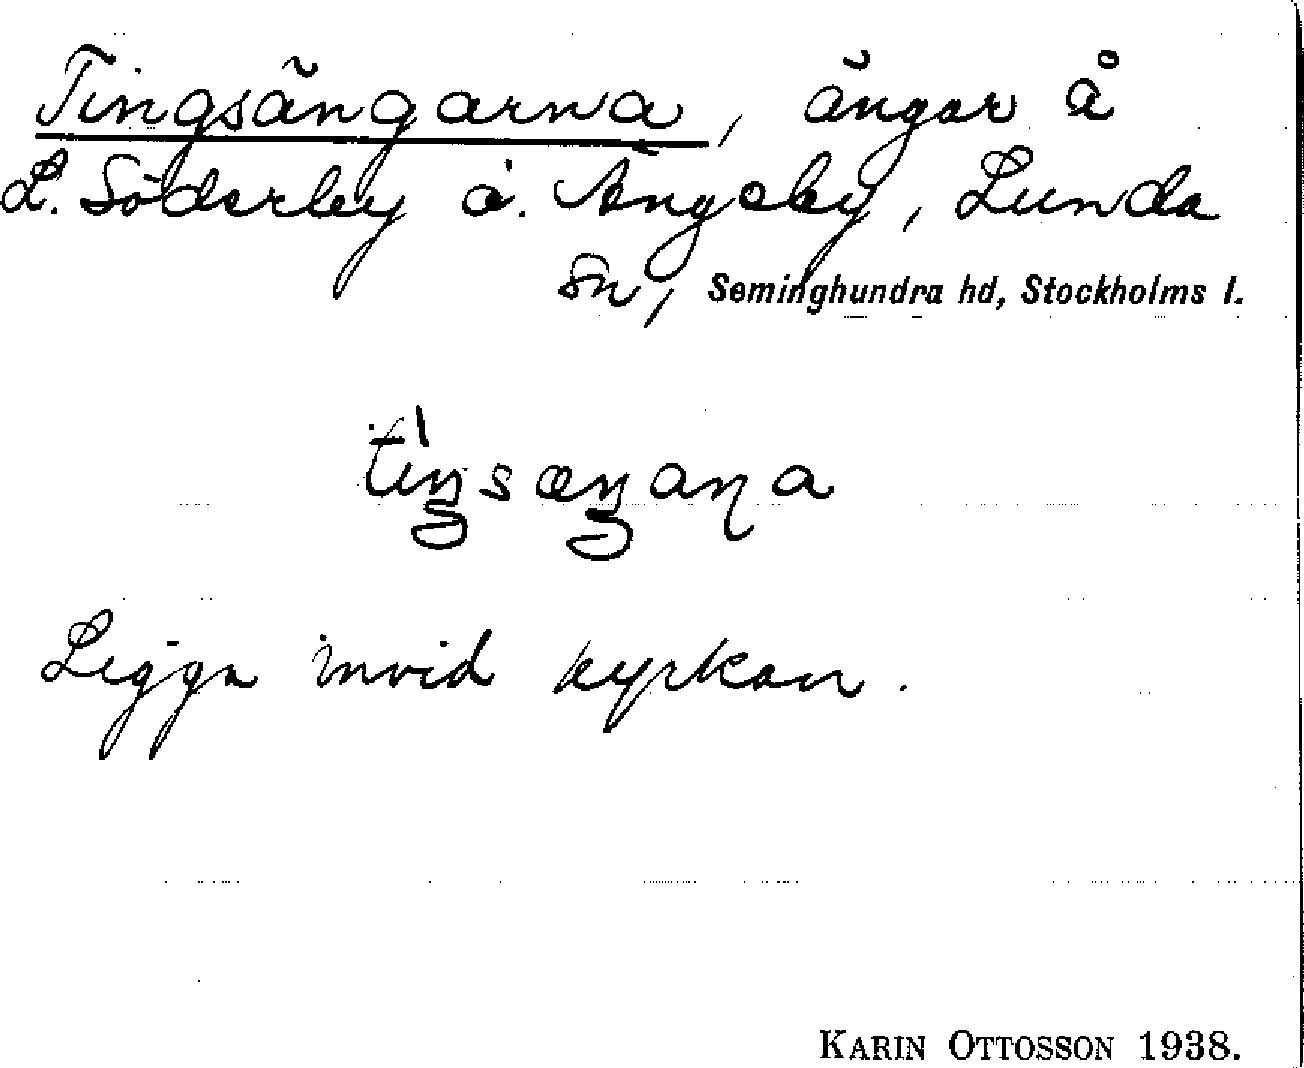 Tingsängarna, ängar å
L. Söderby o. Ängeby, Lunda
sn, Seminghundra hd, Stockholms l.
Ligga invid kyrkan.
KARIN OTTOSSON 1938.